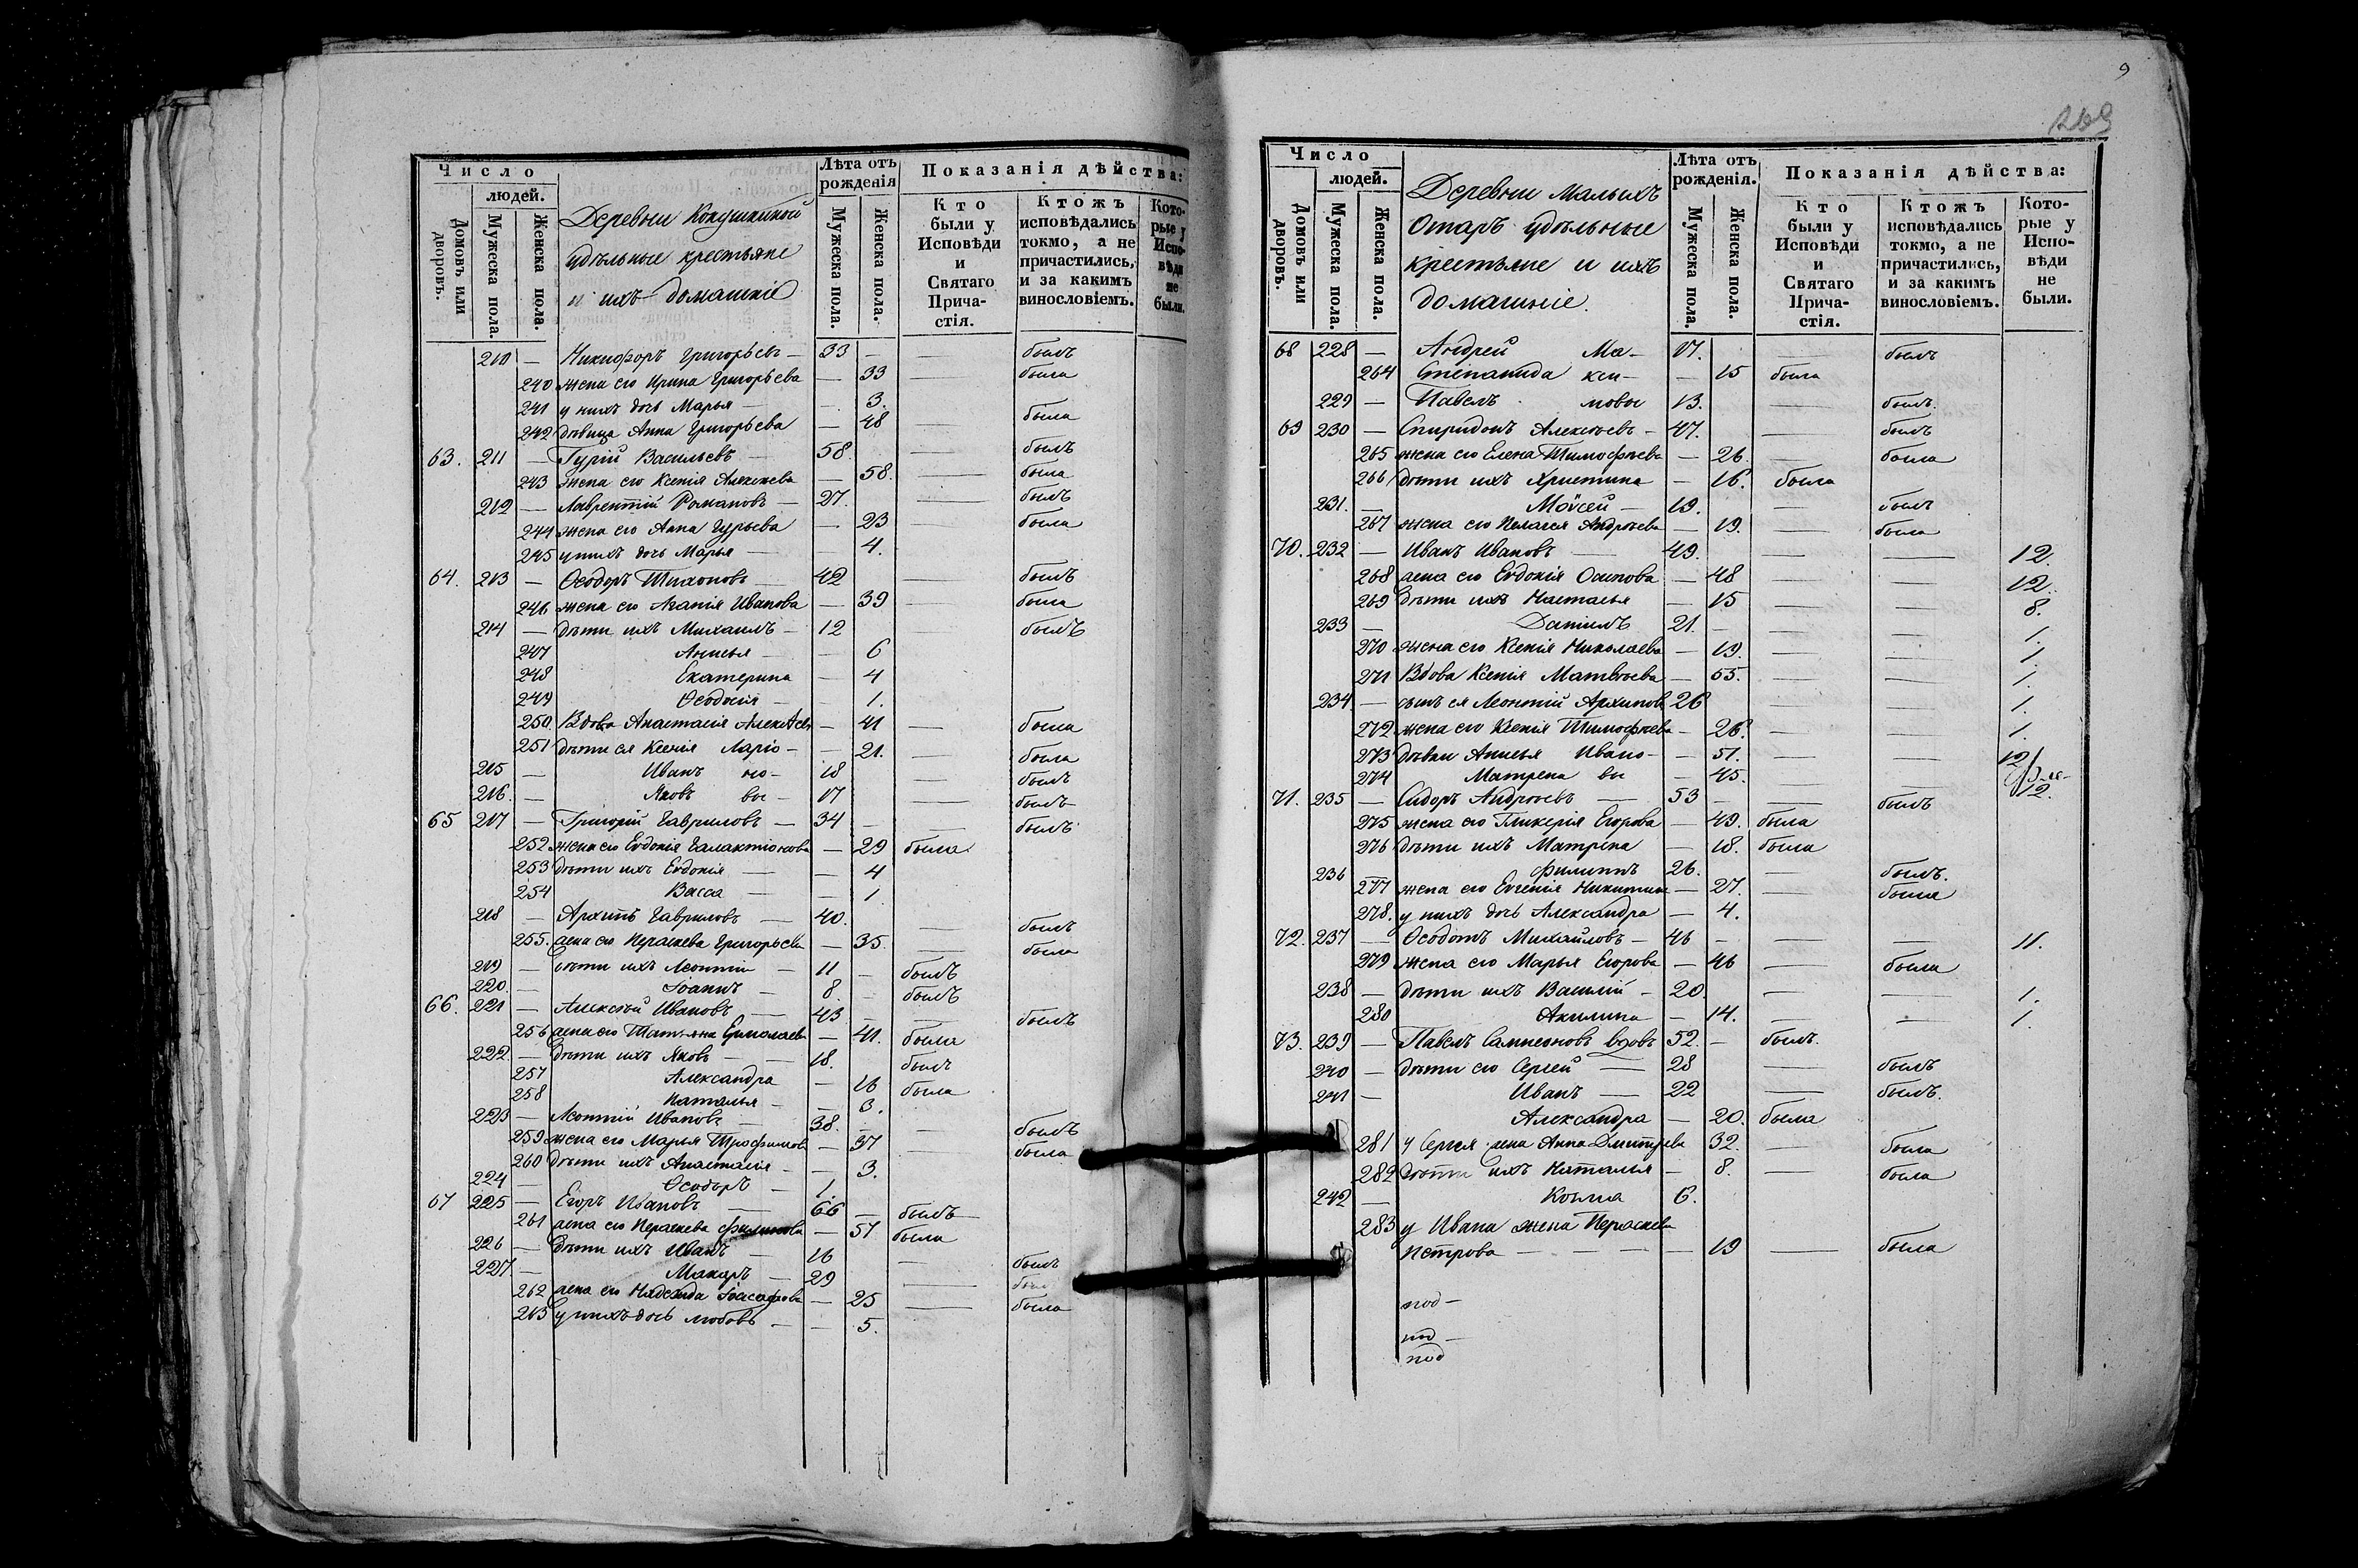 Число
людей.
Домовъ или дворовъ.
Мужеска пола.
Женска пола.
Деревни Кокушкиной
удѣльные крестьяне
и ихъ домашніе
Лѣта отъ рожденія
Мужеска пола.
Женска пола.
Показанія дѣйства:
Кто были у Исповѣди и Святаго Прича-стія.
Ктожъ исповѣдались токмо, а не причастились, и за какимъ винословіемъ.
Кото-рые у Испо-вѣди не были.
210 — Никифоръ Григорьевъ — 33 — былъ
240 жена его Ирина Григорьева — 33 — была
241 у нихъ дочь Марья — — 3.
242 дѣвица Анна Григорьева — 48 — была
63. 211 — Гурій Васильевъ — 58 — былъ
243 жена его Ксенія Алексѣева — 58. — была
212 — Лаврентій Романовъ — 27. — былъ
244 жена его Анна Гурьева — 23 — была
245 у нихъ дочь Марья — — 4.
64. 213 — Ѳеодоръ Тихоновъ — 42 — былъ
246 жена его Агапія Иванова — 39 — была
214 — дѣти ихъ Михаилъ — 12 былъ
247 Анисья — — 6
248 Екатерина — 4
249 Ѳеодосія — — 1.
250. Вдова Анастасія Алексѣев — 41 — была
251 дѣти ея Ксенія Ларіо- — 21. — была
215 — Иванъ но- 18 — былъ
216. — Яковъ вы — 17 — былъ
65 217 — Григорій Гавриловъ — 34 — — былъ
252. жена его Евдокія Галактіонова — 29 была
253 дѣти ихъ Евдокія — — 4
254 Васса — — 1.
218 — Архипъ Гавриловъ — 40. — былъ
255. жена его Параскева Григорьева — 35. — была
219 — дѣти ихъ Леонтій — 11 — былъ
220. — Іоаннъ — 8. — былъ
66. 221 — Алексѣй Ивановъ — 43 — — былъ
256 жена его Татьяна Ермолаева — 41. была
222. — дѣти ихъ Яковъ — — 18. былъ
257 Александра — 16 была
258 Наталья — — 3.
223 — Леонтій Ивановъ — 38. — — былъ
259 жена его Марья Трофимова — 37 — была
260 дѣти ихъ Анастасія — — 3.
224 — Ѳеодоръ — 1
67 225 — Егоръ Ивановъ — 66 — былъ
261 жена его Параскева Филипова — 57 была
226 — дѣти ихъ Иванъ — 16 былъ
227. — Макаръ — 29 —
262 жена его Надежда Іоасафова — 25 — была
263 у нихъ дочь Любовь — — 5.
9
269
Число
людей.
Домовъ или дворовъ.
Мужеска пола.
Женска пола.
Деревни Малыхъ
Отаръ удѣльные
крестьяне и ихъ
домашніе.
Лѣта отъ рожденія.
Мужеска пола.
Женска пола.
Показанія дѣйства:
Кто были у Исповѣди и Святаго Прича-стія.
Ктожъ исповѣдались токмо, а не причастились, и за какимъ винословіемъ.
Кото-рые у Испо-вѣди не были.
68 228 — Андрей Ма- 17. — былъ
264 Степанида кси- — 15 была
229 — Павелъ мовы 13. — былъ.
69 230 — Спиридонъ Алексѣевъ — 47. — былъ
265 жена его Елена Тимофѣева — 26. — была
266 дѣти ихъ Христина — 16. была
231. — Моѵсей — 19. — былъ
267 жена его Пелагея Андреева — 19. — была
70. 232 — Иванъ Ивановъ — 49. — — 12.
268 жена его Евдокія Осипова — 48 — — 12.
269 дѣти ихъ Наталья — 15 — — 8.
233 — Даніилъ 21. — — — 1.
270 жена его Ксенія Николаева — 19. — — 1.
271 Вдова Ксенія Матвѣева — 55. — — 1.
234. — сынъ ея Леонтій Архиповъ 26 — — 1.
272 жена его Ксенія Тимофѣева — 26. — — 1.
273 дѣвки Анисья Ивано- — 51. — — 12
274 Матрена вы — 45. — — 12.
71. 235 — Сидоръ Андреевъ — 53 — — былъ
275 жена его Гликерія Егорова — 49. была
276 дѣти ихъ Матрена — 18. была
236 — Филиппъ 26. — былъ.
277 жена его Евгенія Никитина — 27. — была
278. у нихъ дочь Александра — 4.
72. 237 — Ѳеодотъ Михайловъ — 46 — — — 11.
279 жена его Марья Егорова — 46 — была
238 — дѣти ихъ Василій — 20. — — 1.
280 Акилина — 14. — — 1.
73. 239 — Павелъ Сампсоновъ вдовъ 52. — былъ.
240 — дѣти его Сергей — 28 — былъ
241 — Иванъ — 22 — былъ.
Александра — 20. была
281 у Сергея жена Анна Дмитрева 32. — была
282 дѣти ихъ Наталья — 8. — была
242 — Козьма 6.
283 у Ивана жена Параскева
Петрова — — — — 19 — была
под—
под—
под